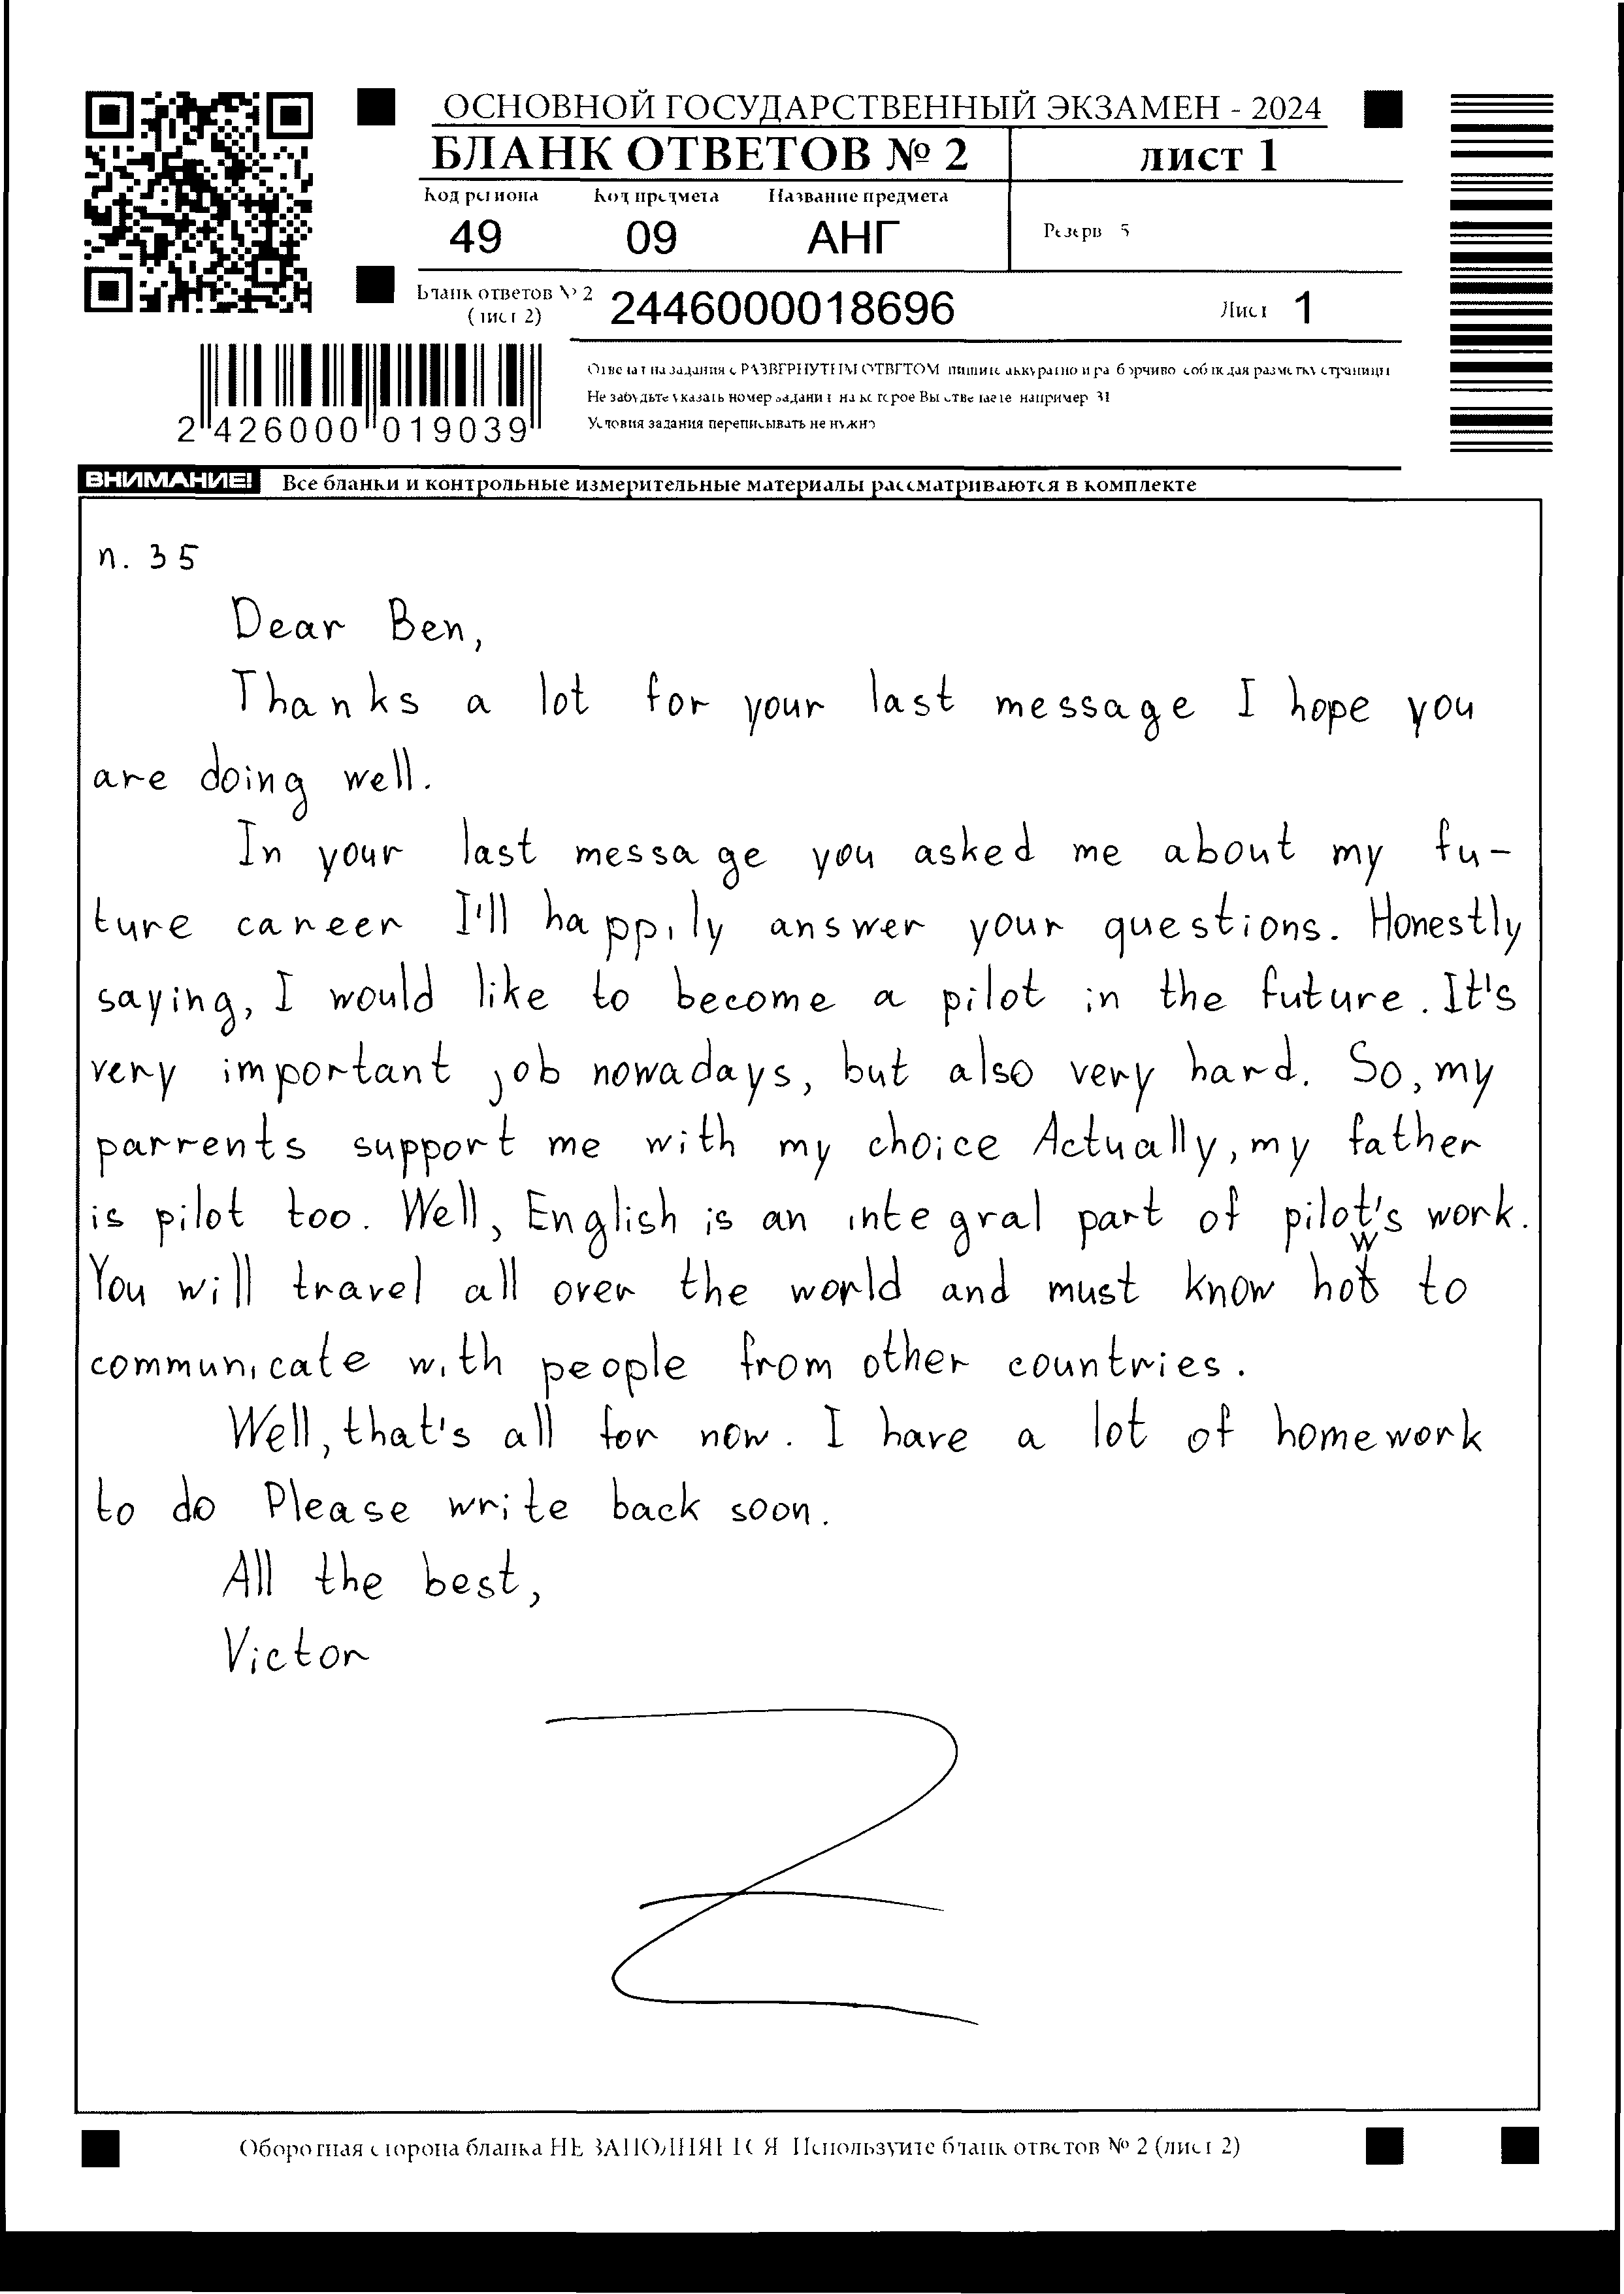 ОСНОВНОЙ ГОСУДАРСТВЕННЫЙ ЭКЗАМЕН - 2024
БЛАНК ОТВЕТОВ № 2
лист 1
Код региона Код предмета Название предмета
49 09 АНГ
Резерв 5
Бланк ответов № 2
(лист 2)
2446000018696
Лист 1
Отвечая на задания с РАЗВЕРНУТЫМ ОТВЕТОМ пишите аккуратно и разборчиво соблюдая разметку страницы
Не забудьте указать номер задания на которое Вы отвечаете например 31
Условия задания переписывать не нужно
2 426000 019039
ВНИМАНИЕ! Все бланки и контрольные измерительные материалы рассматриваются в комплекте
n. 35
Dear Ben,
Thanks a lot for your last message I hope you
are doing well.
In your last message you asked me about my fu-
ture career I'll happily answer your questions. Honestly
saying, I would like to become a pilot in the future. It's
very important job nowadays, but also very hard. So, my
parrents support me with my choice Actually, my father
is pilot too. Well, English is an integral part of pilot's work.
You will travel all over the world and must know how to
communicate with people from other countries.
Well, that's all for now. I have a lot of homework
to do Please write back soon.
All the best,
Victor
Оборотная сторона бланка НЕ ЗАПОЛНЯЕТСЯ Используйте бланк ответов № 2 (лист 2)